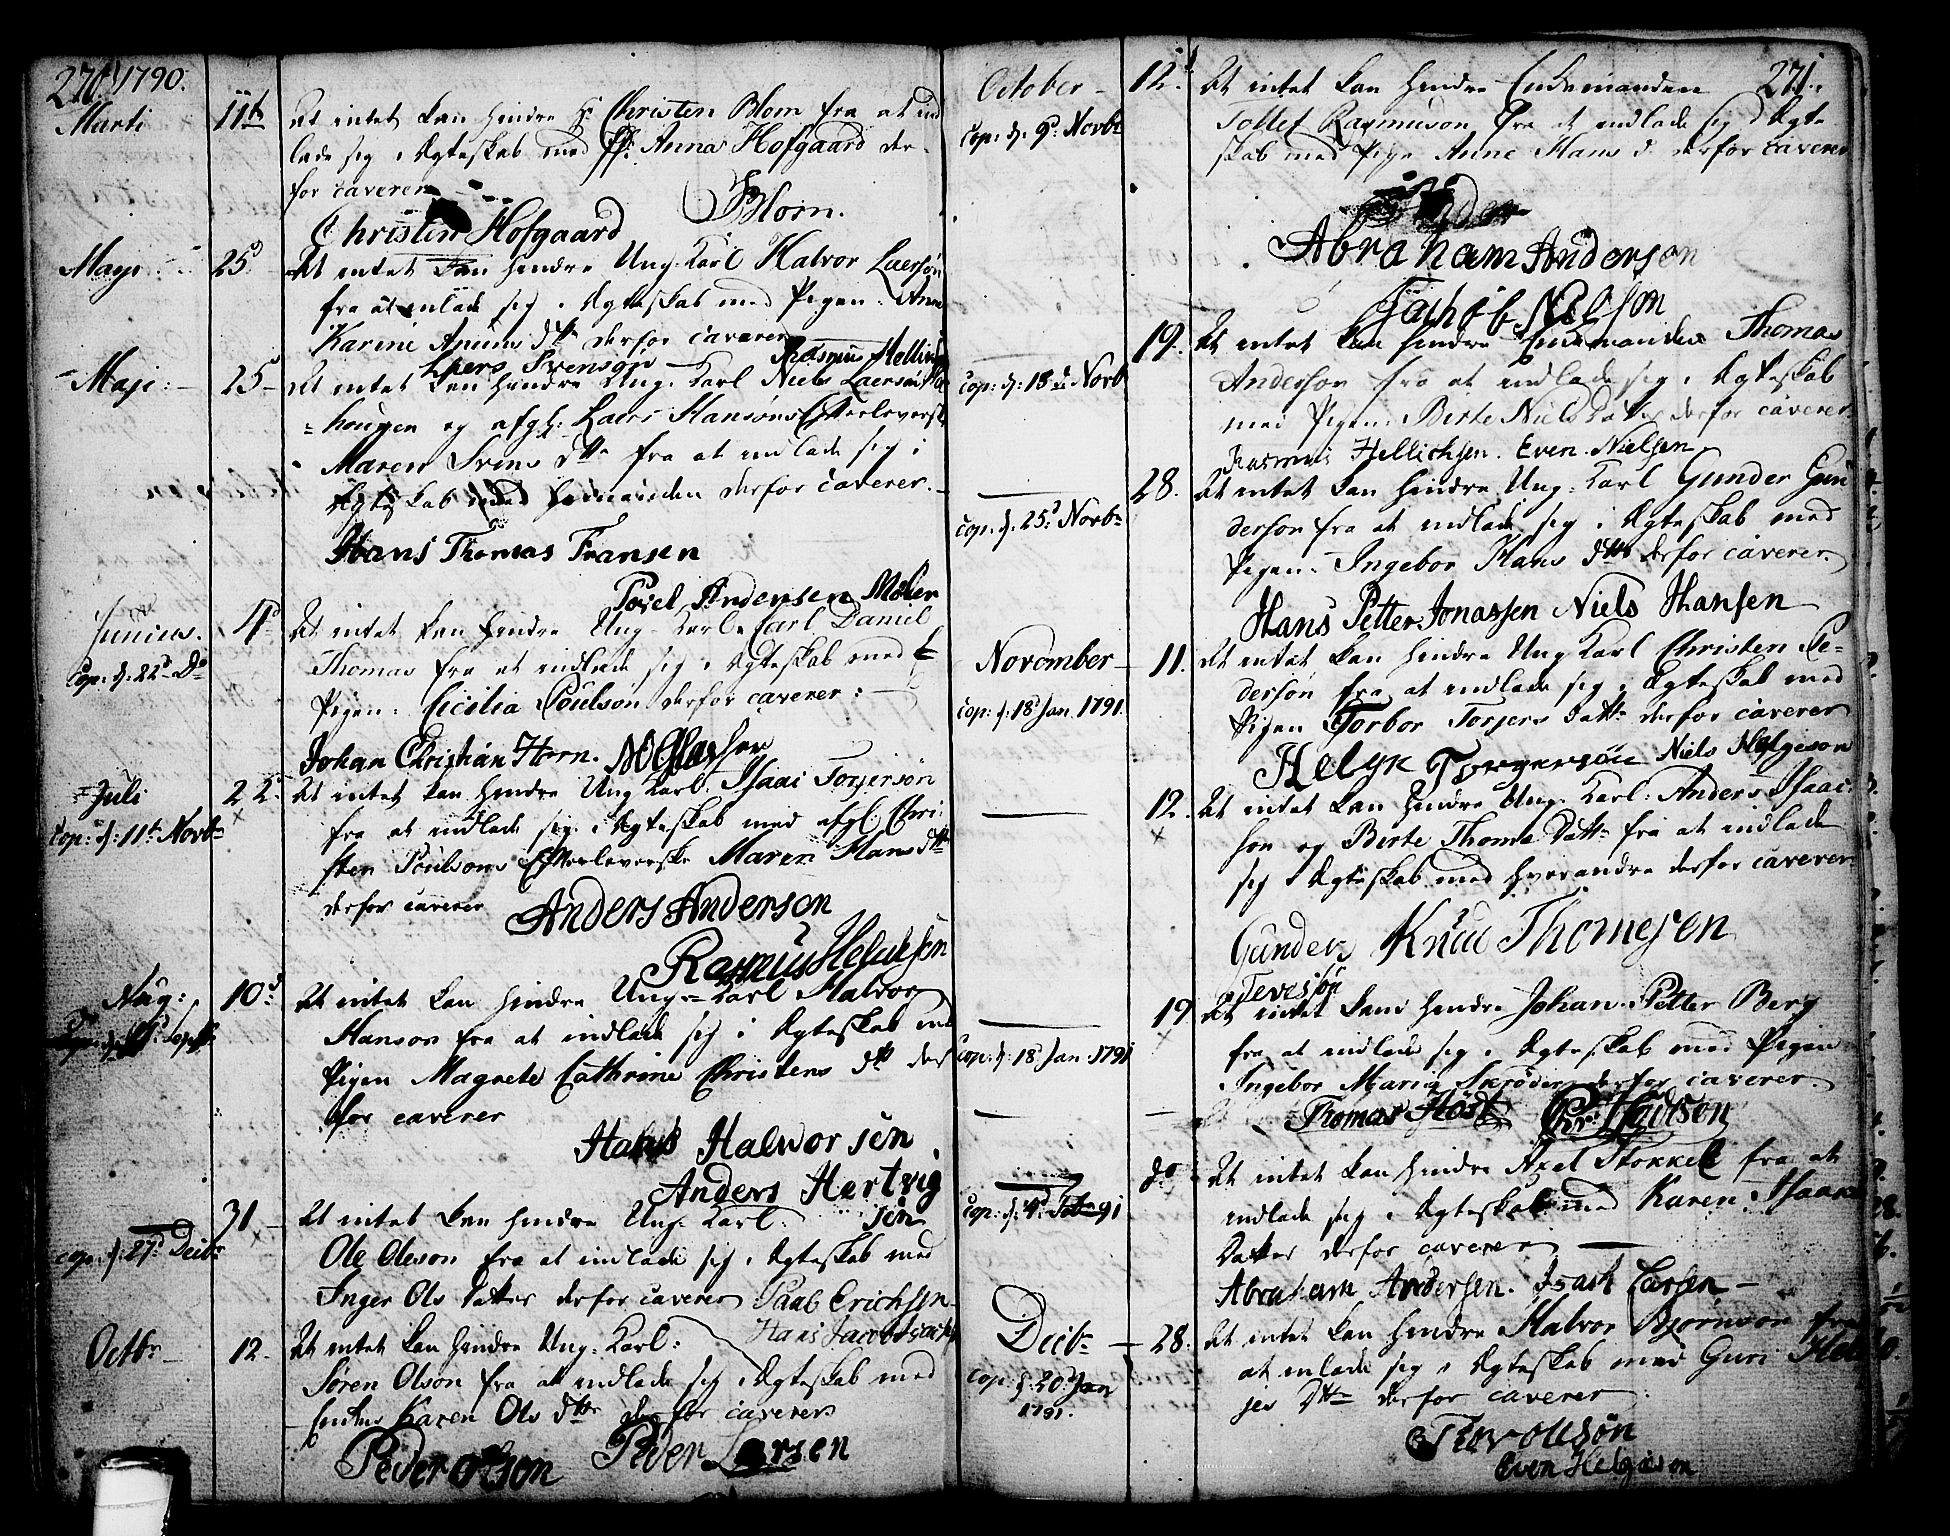 270. 1790.
Marti 11te At intet kan hindre Hr Christen Blom fra at ind
lade sig i Ægteskab med Jfr. Anna Hofgaard der-
for caverer
Blom.
Christen Hofgaard
Maji 25 At intet kan hindre Ung Karl Halvor Laersøn
fra at inlade sig i Ægteskab med Pigen Anne
Karine dtr derfor caverer
Laers Svensøn
Maji 25 At intet kan hindre Ung Karl Niels Laersøn
hougen og afgl: Laers Hansøns Efterleverske
Maren Svens dtr fra at indlade sig i
Ægteskab med hinanden derfor caverer.
Hans Thomas Fransen
Povel Andersen Møler
Junius. 4de At intet kan hindre Ung Karl Carl Daniel
cop: d: 22de Do
Thomas fra at indlade sig i Ægteskab med
Pigen: Cicilia Poulsøn derfor caverer:
Johan Christian Horn.
Juli 22 At intet kan hindre Ung Karl: Isaac Torjersøn
cop: d: 11te Novbr
fra at indlade sig i Ægteskab med afgl: Chri-
sten Poulsons Efterleverske Maren Hans dtr
derfor caverer
Anders Anderson
Rasmus
Aug: 10de At intet kan hindre Ung Karl Halvor
Hanson fra at indlade sig i Ægteskab med
Pigen Magrete Cathrine Christens dtr der
for caverer
Hans Halworsen
Anders Hertvigsen
31 At intet kan hindre Ung Karl
cop: d: 27de Decbr
Ole Oleson fra at indlade sig i Ægteskab med
Inger Ols Datter derfor caverer Paal Erichsen
Octbr 12. At intet kan hindre Ung Karl: Hans Jacob
Søren Olson fra at indlade sig i Ægteskab med
Karen Ols dtr derfor caverer
Peder Olson Peder Larsen
October 12. At intet kan hindre Enkemanden 271.
cop: d: 9de Novbr
Tollef Rasmuson fra at indlade sig i Ægte
skab med Pige Anne Hans d. derfor caverer
Abraham Anderson
Jachob Nilson
19. At intet kan hindre Enkemanden Thomas
cop: d: 18de Novb
Anderson fra at indlade sig i Ægteskab
med Pigen Birte Niels Datter derfor caverer
Rasmus Hellichsen. Even Nielsen
28. At intet kan hindre Ung Karl Gunder Gun
cop: d. 25de Novbr
derson fra at indlade sig i Ægteskab med
Pigen Ingebor Hans dtr derfor caverer.
Hans Petter Jonassen Niels Hansen
November 11. At intet kan hindre Ung Karl Christen Pe-
cop: d: 18de Jan 1791.
dersøn fra at indlade sig i Ægteskab med
Pigen Torbor Torjers Datter derfor caverer
Helge Torgersøn Niels Helgeson
12. At intet kan hindre Ung Karl: Anders Isaac
son og Birte Thome Datter fra at indlade
sig i Ægteskab med hverandre derfor caverer
Gunder Knud Thomesen
Tevesøn
19 At intet kand hindre Johan Petter Berg
cop: d: 18 Jan 1791
fra at indlade sig i Ægteskab med Pigen
Ingebor Maria Skrøder derfor caverer.
Thomas Høst
do At intet kan hindre Axel Stokkel fra at
indlade sig i Ægteskab med Karen Isaacs
cop: d: 4de Febr 91
Datter derfor caverer
Abraham Andersen. Isach Larsen
Decbr 28. At intet kan hindre Halvor Bjørnsøn fra
cop: d. 20de Jan
1791.
at inlade sig i Ægteskab med Guri Hel
jes Dtr derfor caverer
Tovollsøn
Even Helgeson